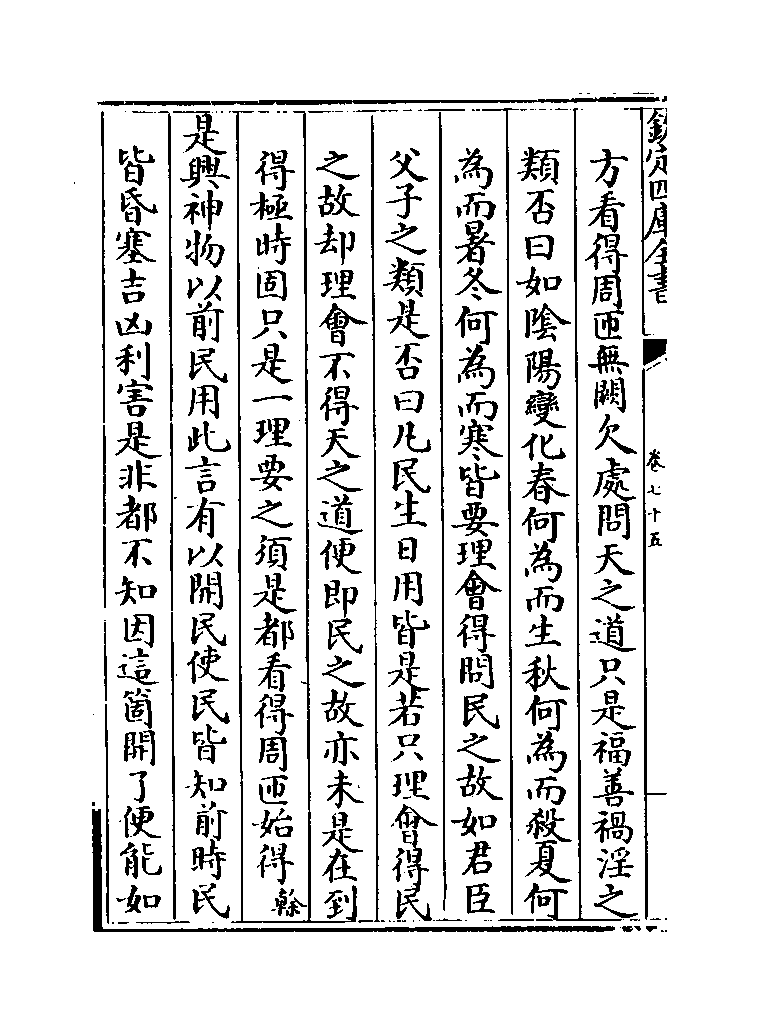 欽定四庫全書
卷七十五
方看得周匝無闕欠處問天之道只是福善禍淫之
類否曰如陰陽變化春何為而生秋何為而殺夏何
為而暑冬何為而寒皆要理會得問民之故如君臣
父子之類是否曰凡民生日用皆是若只理會得民
之故却理會不得天之道便即民之故亦未是在到
得極時固只是一理要之須是都看得周匝始得 榦
是興神物以前民用此言有以開民使民皆知前時民
皆昏塞吉凶利害是非都不知因這箇開了便能如